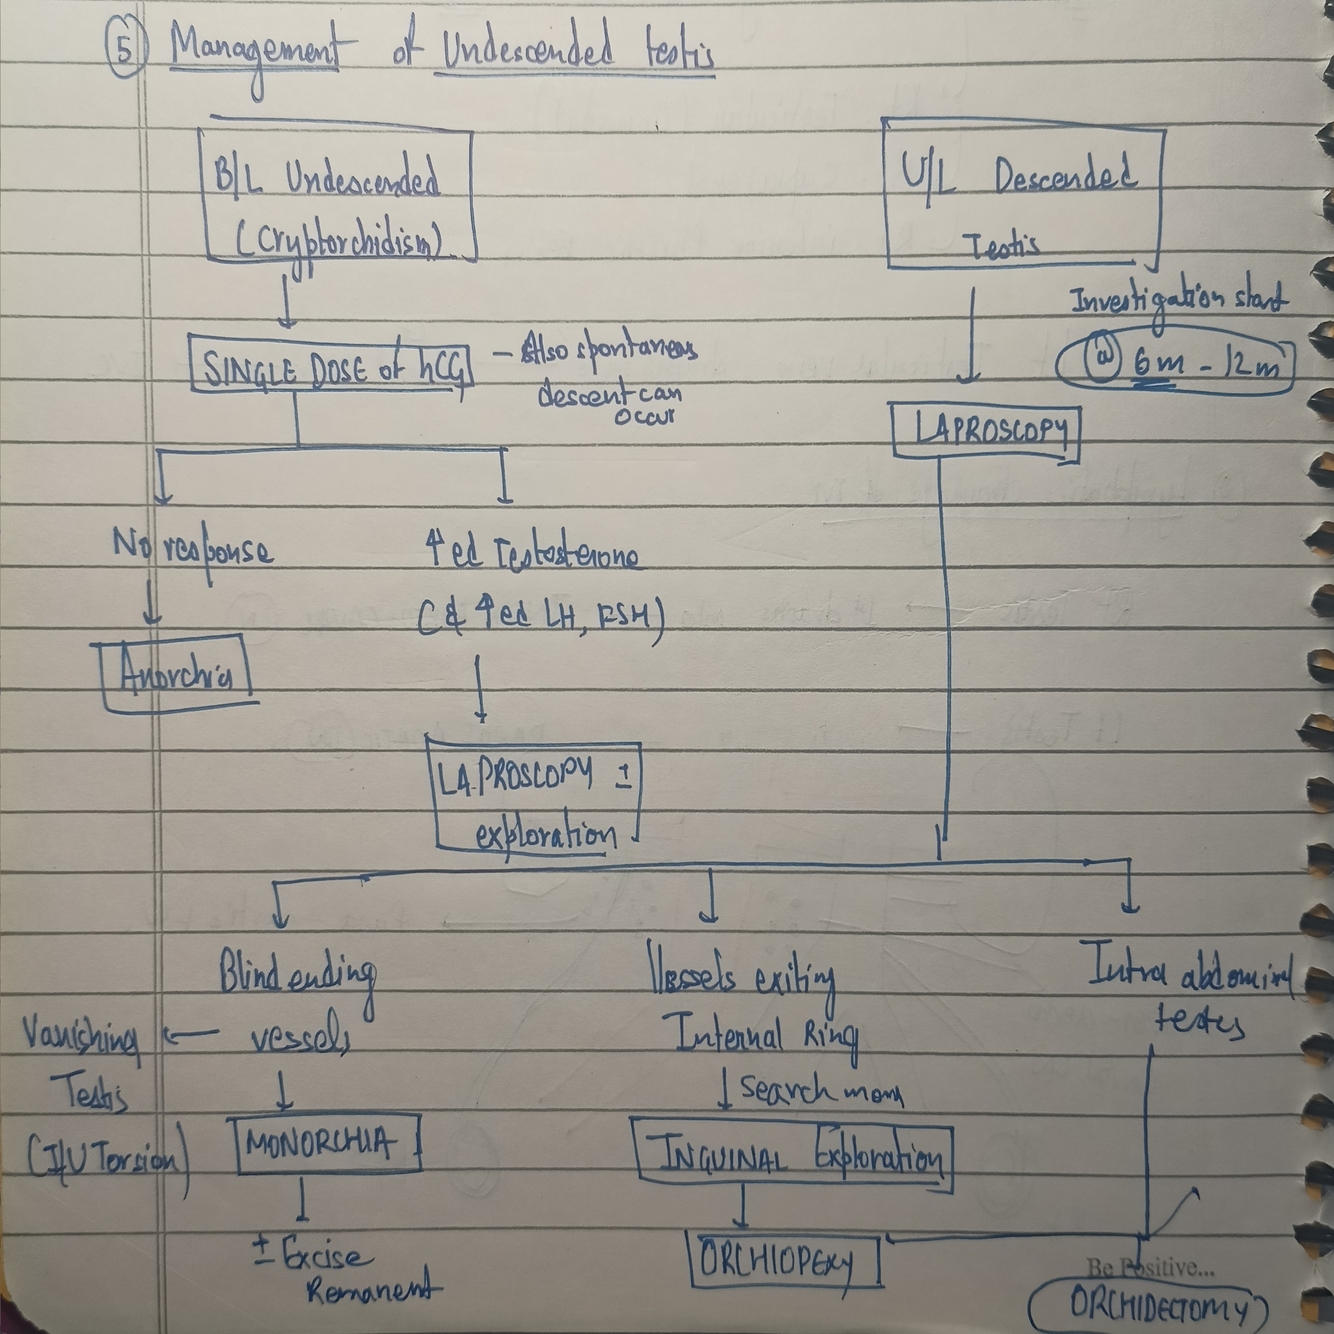 5 Management of Undescended testis
B/L Undescended
(Cryptorchidism)
SINGLE DOSE of hCG
- Also spontaneous
descent can
occur
No response
↑ed Testosterone
(& ↑ed LH, FSH)
Anorchia
LAPROSCOPY ±
exploration
U/L Descended
Testis
Investigation start
@ 6m - 12m
LAPROSCOPY
Blind ending
vessels
Vanishing
Testis
(I/U Torsion)
MONORCHIA
± Excise
Remanent
Vessels exiting
Internal Ring
search more
INGUINAL Exploration
ORCHIOPEXY
Intra abdominal
testes
Be Positive...
ORCHIDECTOMY